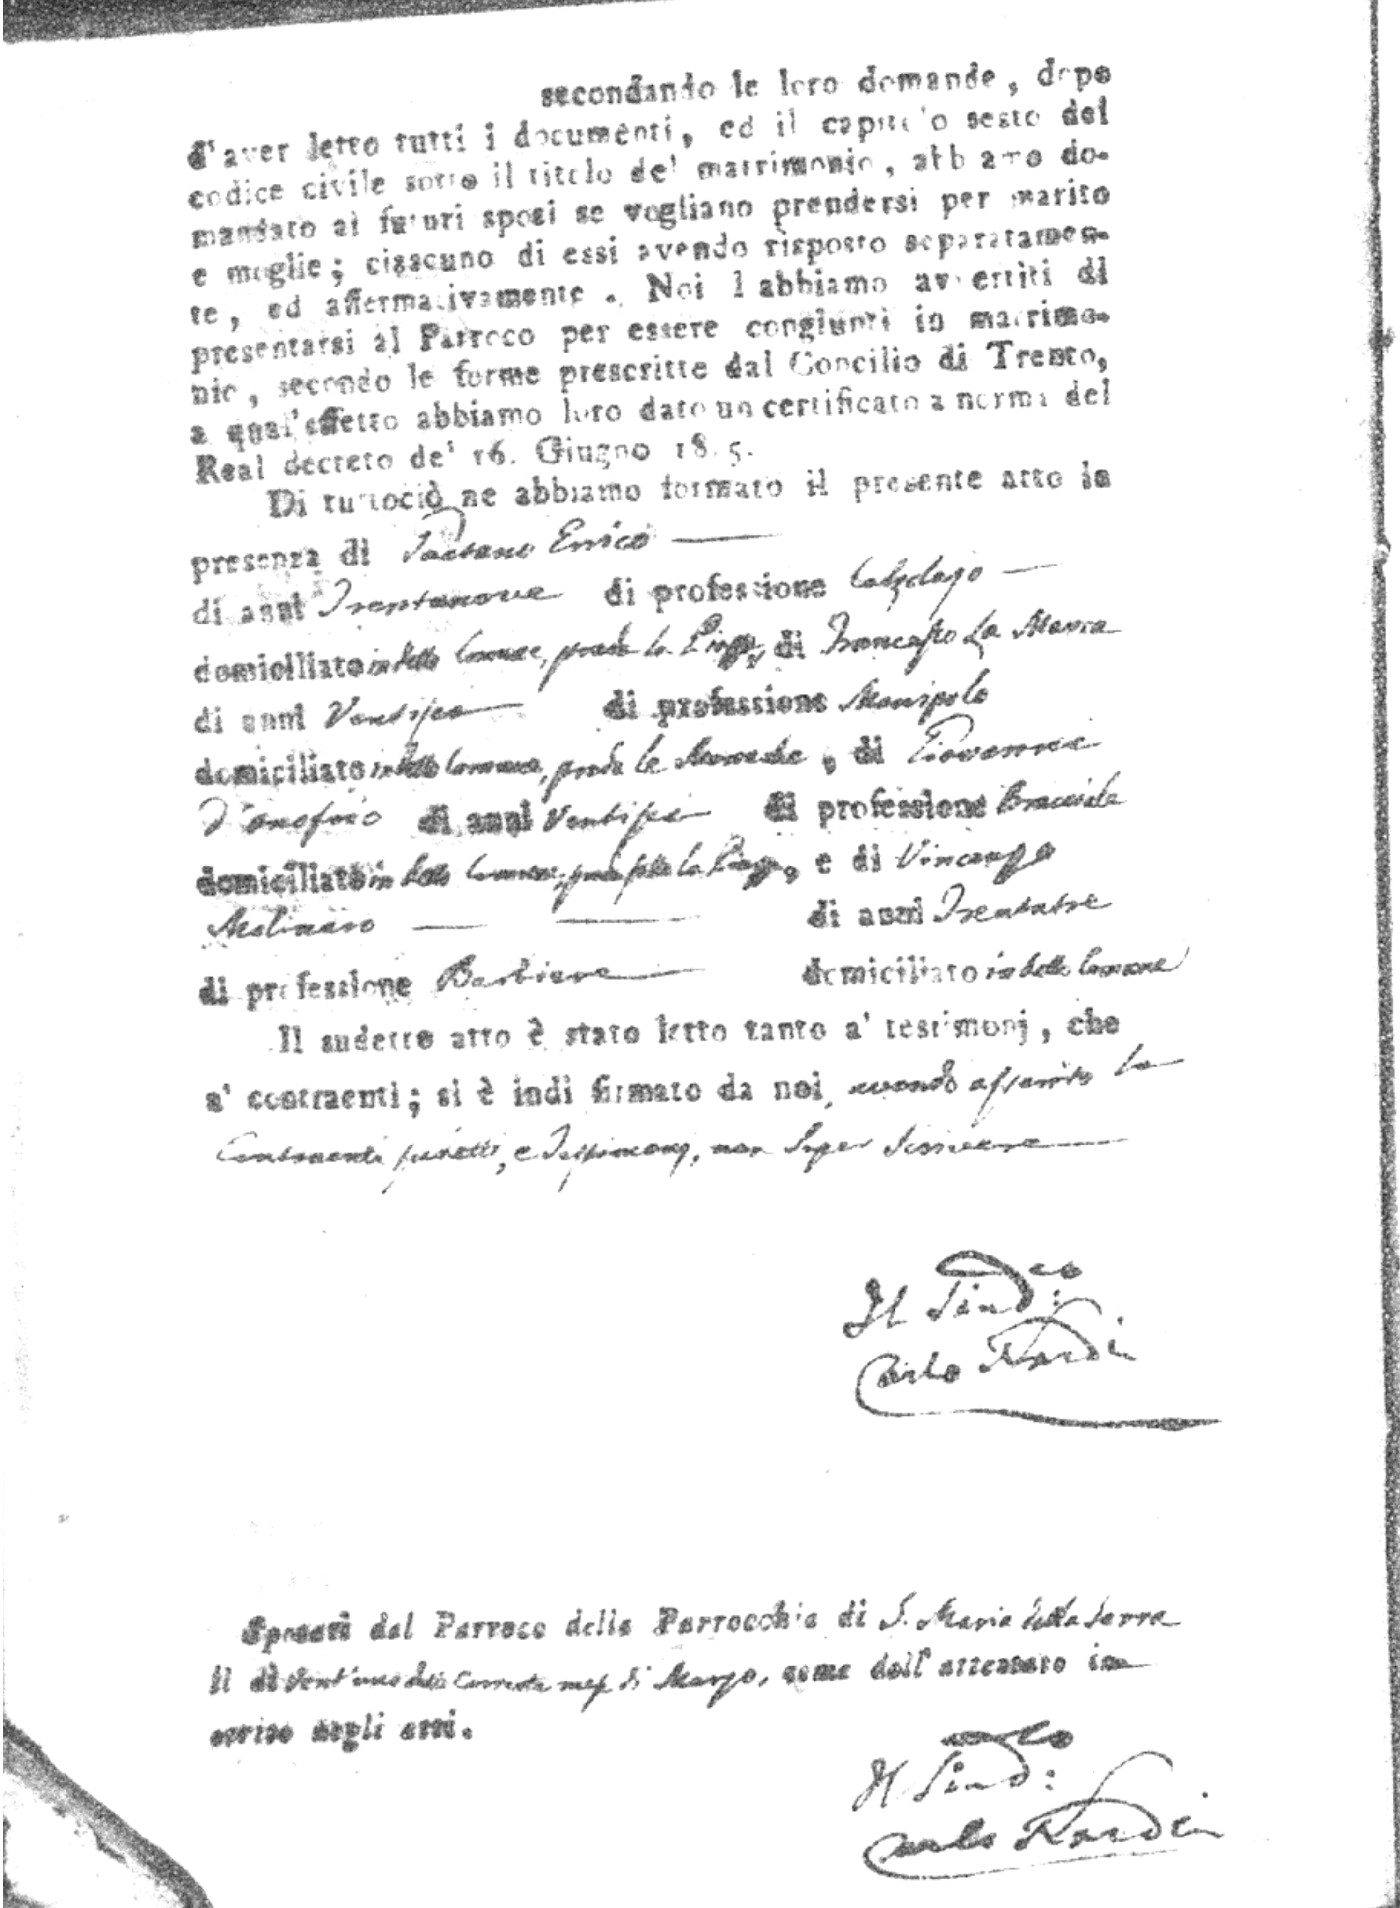 secondando le loro domande, dopo
d'aver letto tutti i documenti, ed il capitolo sesto del
codice civile sotto il titolo del matrimonio, abbiamo do-
mandato ai futuri sposi se vogliano prendersi per marito
e moglie; ciascuno di essi avendo risposto separatamen-
te, ed affermativamente. Noi l abbiamo avvertiti di
presentarsi al Parroco per essere congiunti in matrimo-
nio, secondo le forme prescritte dal Concilio di Trento,
a qual'effetto abbiamo loro dato un certificato a norma del
Real decreto de' 16. Giugno 18 5.
Di tuttociò ne abbiamo formato il presente atto in
presenza di Gaetano Errico
di anni Trentanove di professione Calzolajo
domiciliato in detto Comune, strada la Piazza, di Francesco La Marra
di anni Ventisei di professione
domiciliato in detto Comune, strada le , di Giovanni
D'onofrio di anni Ventisei di professione Bracciale
domiciliato in detto Comune, strada sotto la Piazza, e di Vincenzo
Molinaro di anni Trentatre
di professione Barbiere domiciliato in detto Comune
Il sudetto atto è stato letto tanto a' testimonj, che
a' contraenti; si è indi firmato da noi, avendo asserito li
Contraenti sudetti, e Testimonj, non saper scrivere
Il Sind:co
Carlo Nardi
Sposati dal Parroco della Parrocchia di S. Maria della Terra
li di vent'uno del Corrente mese di Marzo, come dall'attestato in-
scritto negli atti.
Il Sind:co
Carlo Nardi